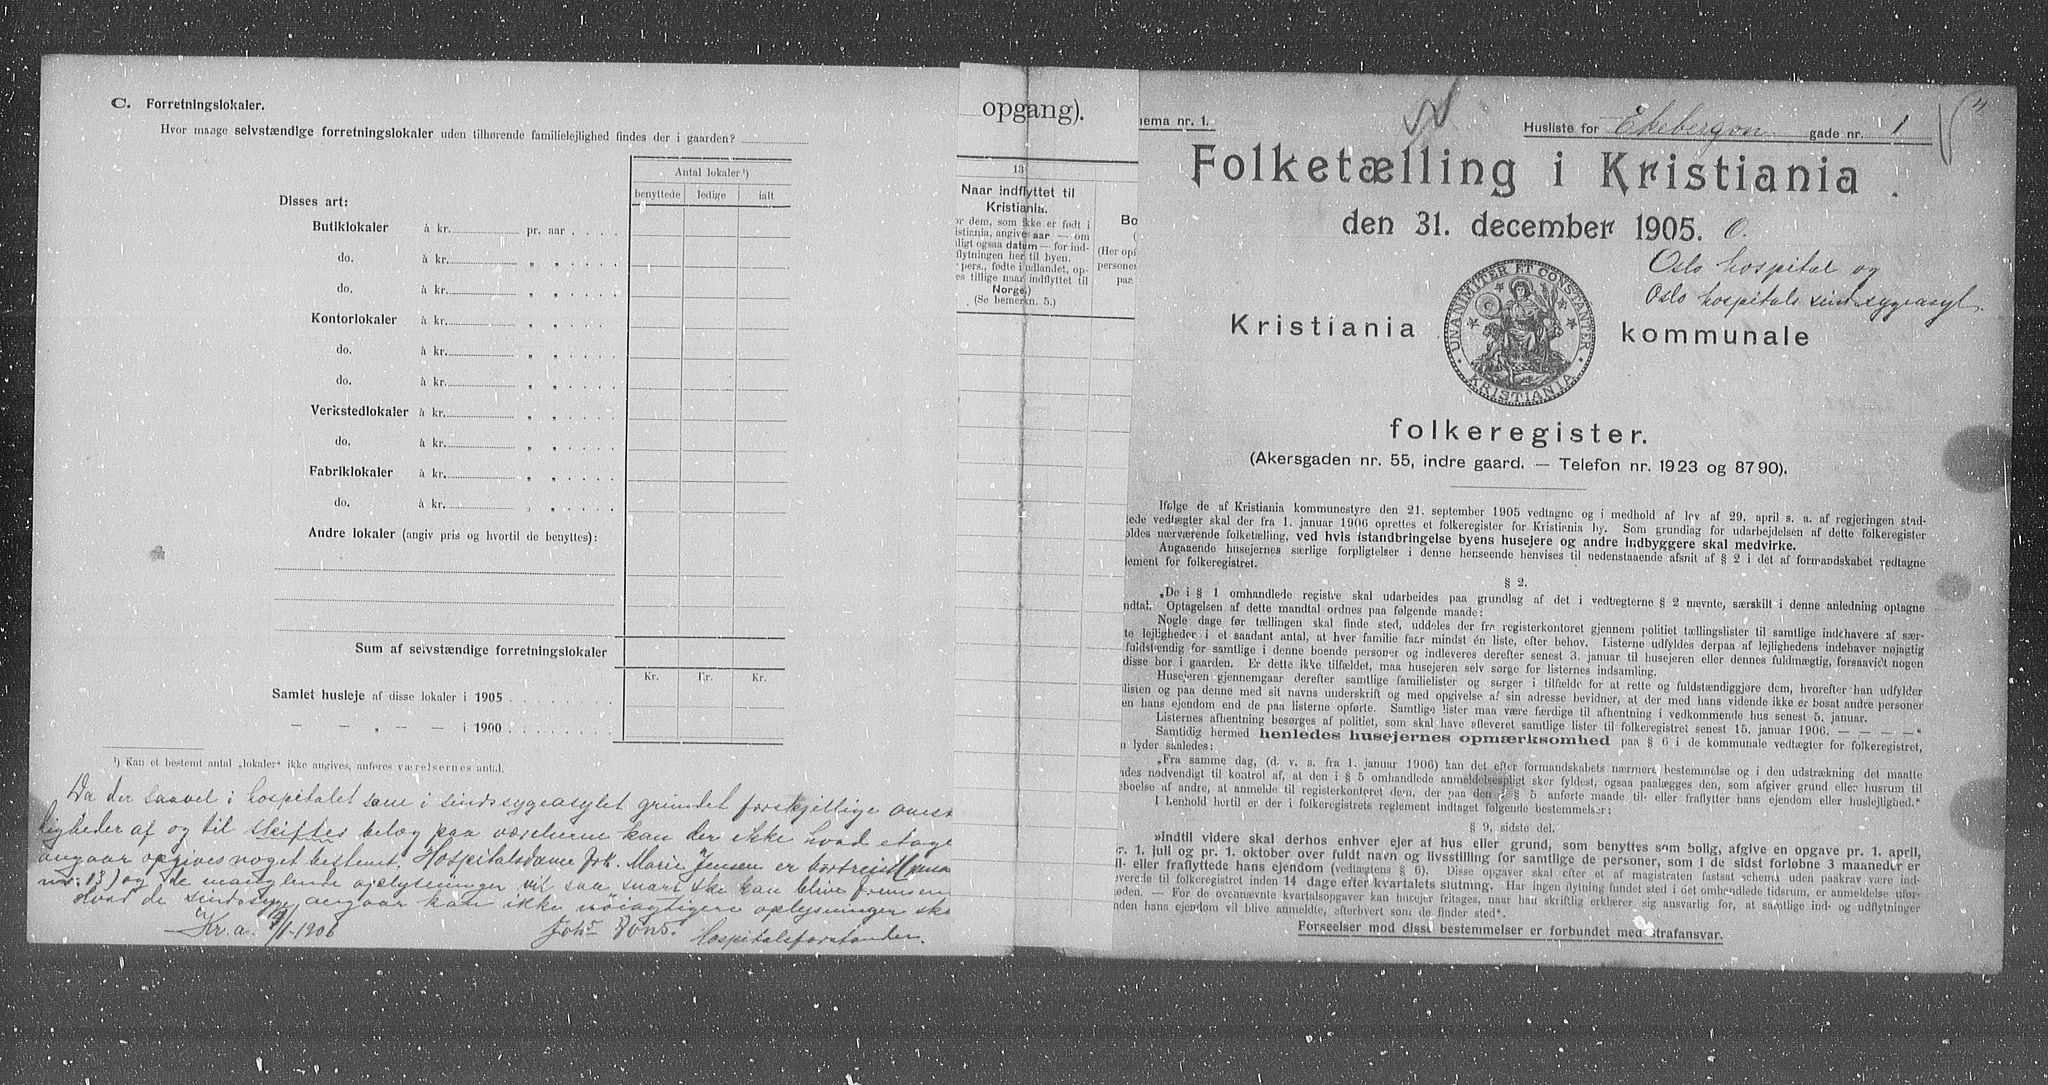 C. Forretningslokaler.
Hvor mange selvstændige forretningslokaler uden tilhørende familielejlighed findes der i gaarden?
Antal lokaler ¹)
benyttede ledige ialt
Disses art:
Butiklokaler à kr. pr. aar
do. à kr. „ „
do. à kr. „ „
Kontorlokaler à kr. „ „
do. à kr. „ „
do. à kr. „ „
Verkstedlokaler à kr. „ „
do. à kr. „ „
Fabriklokaler à kr. „ „
do. à kr. „ „
Andre lokaler (angiv pris og hvortil de benyttes):
Sum af selvstændige forretningslokaler
Kr. Kr. Kr.
Samlet husleje af disse lokaler i 1905
— — „ — — i 1900
¹) Kan et bestemt antal „lokaler“ ikke angives, anføres værelsernes antal.
Da der saavel i hospitalet som i sindssygeasylet grundet forskjellige
ligheder af og til skiftes belæg paa værelserne kan der ikke hvad etage
angaar opgives noget bestemt. Hospitalsdame Frk. Marie Jensen er bortreist
nr. 13) og de manglende oplysninger vil saa snart ske kan blive
Hvad de sindssyge angaar kan ikke nöiagtigere oplysninger
Kr.a. 1906
Hospitalsforstander.
opgang).
13
Naar indflyttet til
Kristiania.
or dem, som ikke er født i
istiania, angives aar — om
uligt ogsaa datum — for ind-
flytningen her til byen.
pers., fødte i udlandet, op-
es tillige naar indflyttet til
Norge.)
(Se bemerkn. 5.)
Bo
(Her opi
personer
paa
ema nr. 1.
Husliste for Ekebergvn. gade nr. 1
Folketælling i Kristiania
den 31. december 1905.
Oslo hospital og
Oslo hospitals sindssygeasyl.
UNANIMITER ET CONSTANTER
KRISTIANIA
Kristiania kommunale
folkeregister.
(Akersgaden nr. 55, indre gaard. — Telefon nr. 1923 og 8790).
Ifølge de af Kristiania kommunestyre den 21. september 1905 vedtagne og i medhold af lov af 29. april s. a. af regjeringen stad-
tede vedtægter skal der fra 1. januar 1906 oprettes et folkeregister for Kristiania by. Som grundlag for udarbejdelsen af dette folkeregister
oldes nærværende folketælling, ved hvis istandbringelse byens husejere og andre indbyggere skal medvirke.
Angaaende husejernes særlige forpligtelser i denne henseende henvises til nedenstaaende afsnit af § 2 i det af formandskabet vedtagne
lement for folkeregistret.
§ 2.
„De i § 1 omhandlede registre skal udarbeides paa grundlag af det i vedtægterne § 2 nævnte, særskilt i denne anledning optagne
ndtal. Optagelsen af dette mandtal ordnes paa følgende maade:
Nogle dage før tællingen skal finde sted, uddeles der fra registerkontoret gjennem politiet tællingslister til samtlige indehavere af sær-
te lejligheder i et saadant antal, at hver familie faar mindst én liste, efter behov. Listerne udfyldes derpaa af lejlighedens indehaver nøjagtig
fuldstændig for samtlige i denne boende personer og indleveres derefter senest 3. januar til husejeren eller dennes fuldmægtig, forsaavidt nogen
disse bor i gaarden. Er dette ikke tilfældet, maa husejeren selv sørge for listernes indsamling.
Husejeren gjennemgaar derefter samtlige familielister og sørger i tilfælde for at rette og fuldstændiggjøre dem, hvorefter han udfylder
listen og paa denne med sit navns underskrift og med opgivelse af sin adresse bevidner, at der med hans vidende ikke er bosat andre personer
en hans ejendom end de paa listerne opførte. Samtlige lister maa være færdige til afhentning i vedkommende hus senest 5. januar.
Listernes afhentning besørges af politiet, som skal have afleveret samtlige lister til folkeregistret senest 15. januar 1906. — — — —“
Samtidig hermed henledes husejernes opmærksomhed paa § 6 i de kommunale vedtægter for folkeregistret,
n lyder saaledes:
„Fra samme dag, (d. v. s. fra 1. januar 1906) kan det efter formandskabets nærmere bestemmelse og i den udstrækning det maatte
ndes nødvendigt til kontrol af, at den i § 5 omhandlede anmeldelsespligt sker fyldest, ogsaa paalægges den, som afgiver grund eller husrum til
beboelse af andre, at anmelde til registerkontoret dem, der paa den i § 5 anførte maade til- eller fraflytter hans ejendom eller huslejlighed.“
I henhold hertil er der i folkeregistrets reglement indtaget følgende bestemmelser:
§ 9, sidste del.
»Indtil videre skal derhos enhver ejer af hus eller grund, som benyttes som bolig, afgive en opgave pr. 1. april,
r. 1. juli og pr. 1. oktober over fuldt navn og livsstilling for samtlige de personer, som i de sidst forløbne 3 maaneder er
ll- eller fraflyttede hans ejendom (vedtægtens § 6). Disse opgaver skal efter et af magistraten fastsat schema uden paakrav være ind-
leverede til folkeregistret inden 14 dage efter kvartalets slutning. Har ingen flytning fundet sted i det omhandlede tidsrum, er anmeldelse ufor-
nøden. — For de ovennævnte kvartalsopgaver kan husejer fritages, naar han skriftlig erklærer sig ansvarlig for, at samtlige ind- og udflytninger
nden hans ejendom vil blive anmeldte, efterhvert som de finder sted«.
Forseelser mod disse bestemmelser er forbundet med strafansvar.